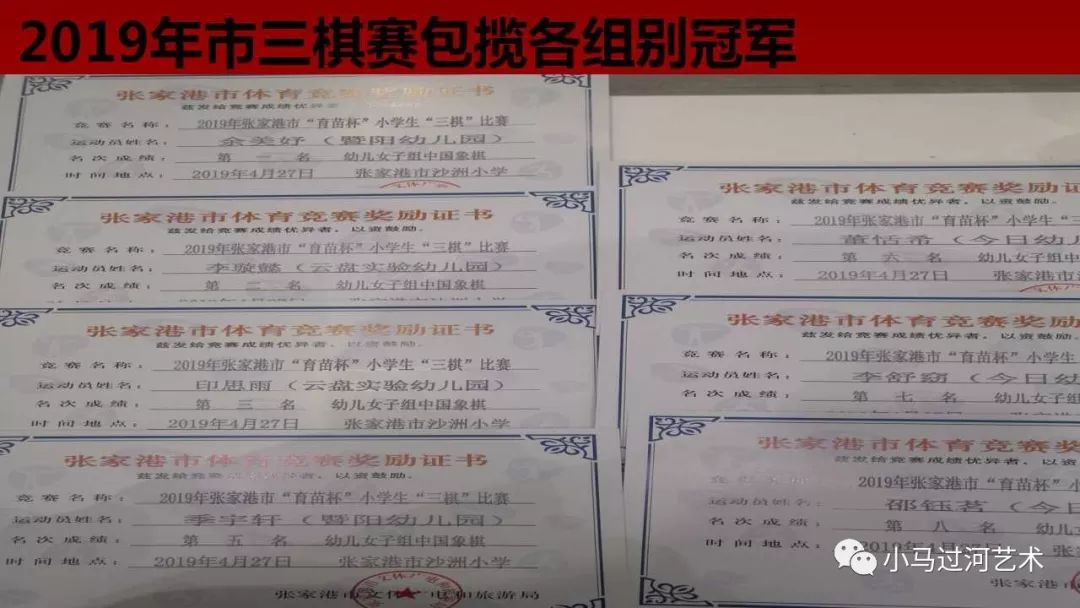 2019年市三棋赛包揽各组别冠军
张家港市体育竞赛奖励证书
兹发给竞赛成绩优异者
竞赛名称：2019年张家港市“育苗杯”小学生“三棋”比赛
运动员姓名：余美妤（暨阳幼儿园）
名次成绩：第一名 幼儿女子组中国象棋
时间地点：2019年4月27日 张家港市沙洲小学
张家港市体育竞赛奖励证书
兹发给竞赛成绩优异者，以资鼓励。
竞赛名称：2019年张家港市“育苗杯”小学生“三棋”比赛
运动员姓名：李璇懿（云盘实验幼儿园）
名次成绩：第二名 幼儿女子组中国象棋
张家港市体育竞赛奖励证书
兹发给竞赛成绩优异者，以资鼓励。
竞赛名称：2019年张家港市“育苗杯”小学生“三棋”比赛
运动员姓名：印思雨（云盘实验幼儿园）
名次成绩：第三名 幼儿女子组中国象棋
时间地点：2019年4月27日 张家港市沙洲小学
张家港市体育竞赛奖励证书
兹发给竞赛成绩优异者，以资鼓励。
竞赛名称：2019年张家港市“育苗杯”小学生“三棋”比赛
运动员姓名：季宇轩（暨阳幼儿园）
名次成绩：第五名 幼儿女子组中国象棋
时间地点：2019年4月27日 张家港市沙洲小学
张家港市文体广电和旅游局
张家港市体育竞赛奖励
兹发给竞赛成绩优异者，以资鼓励。
竞赛名称：2019年张家港市“育苗杯”小学生“三
运动员姓名：董恬希（今日幼儿
名次成绩：第六名 幼儿女子组中国
时间地点：2019年4月27日 张家港市
张家港市体育竞赛奖励
兹发给竞赛成绩优异者，以资鼓励。
竞赛名称：2019年张家港市“育苗杯”小学生
运动员姓名：李舒窈（今日幼
名次成绩：第七名 幼儿女子组中国
张家港市体育竞赛奖
兹发给竞赛成绩优异者，以资
竞赛名称：2019年张家港市“育苗杯”小
运动员姓名：邵钰茗（今日
名次成绩：第八名 幼儿女
时间地点：2019年4月27日
张家港市
小马过河艺术